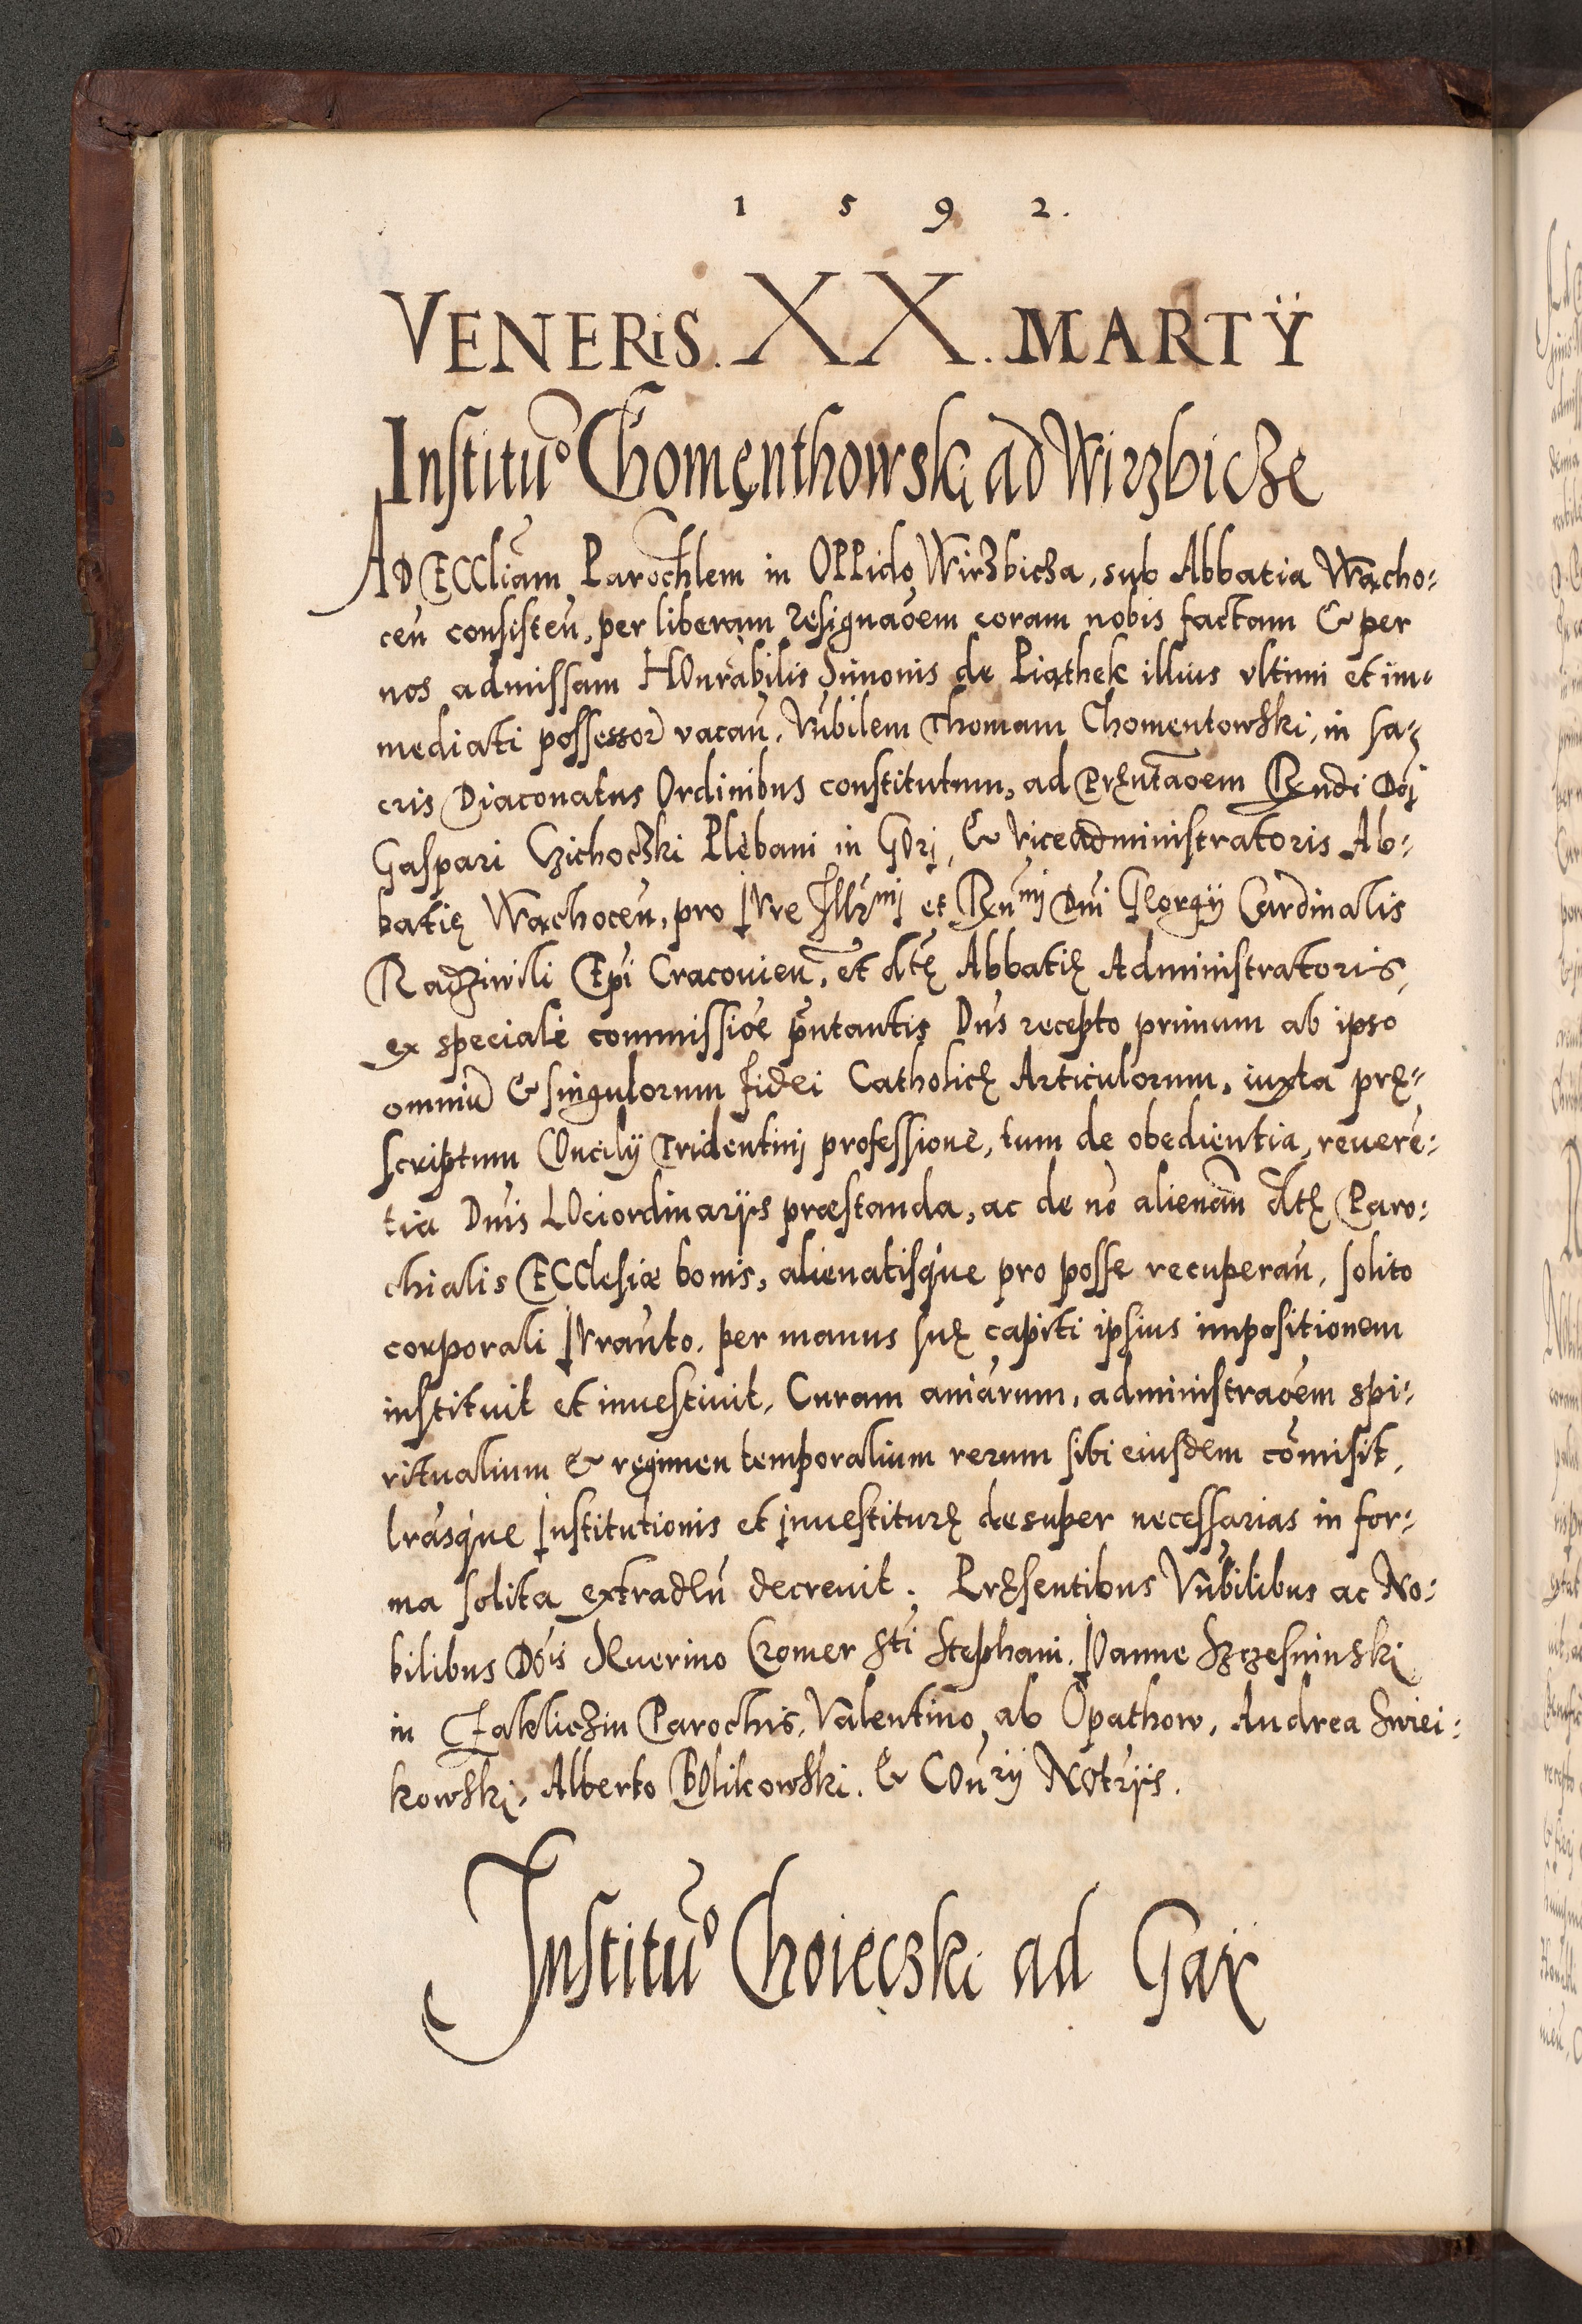 1 5 9 2.
VENERIS. XX. MARTŸ
Institúº Chomęnthowski ad Wirzbicze
AD ECCliam Parochlem in OPPido Wirzbicza, sub Abbatia Wącho:
ceń consisteń, per liberam resignaõem coram nobis factam & per
nos admissam HOnrabilis Simonis de Piąthek illius vltimi et im-
mediati possessor vacań, Vńbilem Thomam Chomentowski, in sa-
cris Diaconatus Ordinibus constitutum, ad Pręntãoem Rendi Dñi
Gaspari Czichoczki Plebani in GOrj, & Viceadministratoris Ab:
batię Wąchoceń, pro IVre Illr̃mj et Reñmj Dñi GEorgÿ Cardinalis
Radziwili Epi Cracouień, et dtę Abbatię Administratoris,
ex speciali commissiõe p̃ntantis Dñs recepto primum ab ipso
omniũ & singulorum fidei Catholicę Articulorum, iuxta prę-
scriptum COncilÿ Tridentinj professionẽ, tum de obedientia, reuerẽ:
tia Dñis LOciordinarÿs præstanda, ac de nõ alienań dtę Paro:
chialis ECClesiæ bonis, alienatisq̃ue pro posse recuperań, solito
corporali IVrańto. per manus suę capiti ipsius impositionem
instituit et inuestiuit, Curam aniarum, administraõem spi:
ritualium & regimen temporalium rerum sibi eiusdem cõmisit,
lrasq̃ue Institutionis et Inuestiturę desuper necessarias in for:
ma solita extradEń decreuit. PrĘsentibus Vńbilibus ac No:
bilibus Dõis SEuerino Cromer Sti Stephani. IOanne Szczesninski
in Zakliczin Parochis, Valentino ab Opathow, Andrea Swiei:
kowski, Alberto BOlikowski. & COńrÿ NOtrÿs.
Institúº Choieczki ad Gay